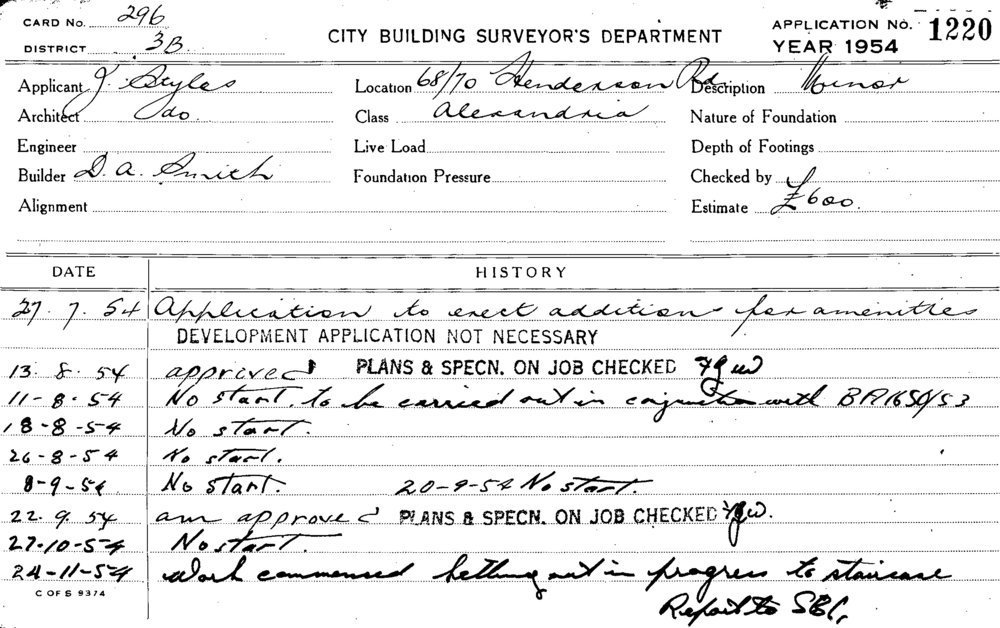 CARD No. 296
DISTRICT 3B.
CITY BUILDING SURVEYOR'S DEPARTMENT
APPLICATION No. 1220
YEAR 1954
Applicant J. Styles Location 68/70 Henderson Rd. Description Minor
Architect do. Class Alexandria Nature of Foundation
Engineer Live Load Depth of Footings
Builder D. A. Smith Foundation Pressure Checked by
Alignment Estimate £600.
DATE HISTORY
27. 7. 54 Application to erect additions for amenities
DEVELOPMENT APPLICATION NOT NECESSARY
13. 8. 54 approved PLANS & SPECN. ON JOB CHECKED
11-8-54 No start. to be carried out in conjunction with BA1650/53
18-8-54 No start.
26-8-54 No start.
8-9-54 No start. 20-9-54 No start.
22. 9. 54 am approved PLANS & SPECN. ON JOB CHECKED
27-10-54 No start.
24-11-54 Work commenced out in progress to staircase
C OF S 9374
Report to SBI.